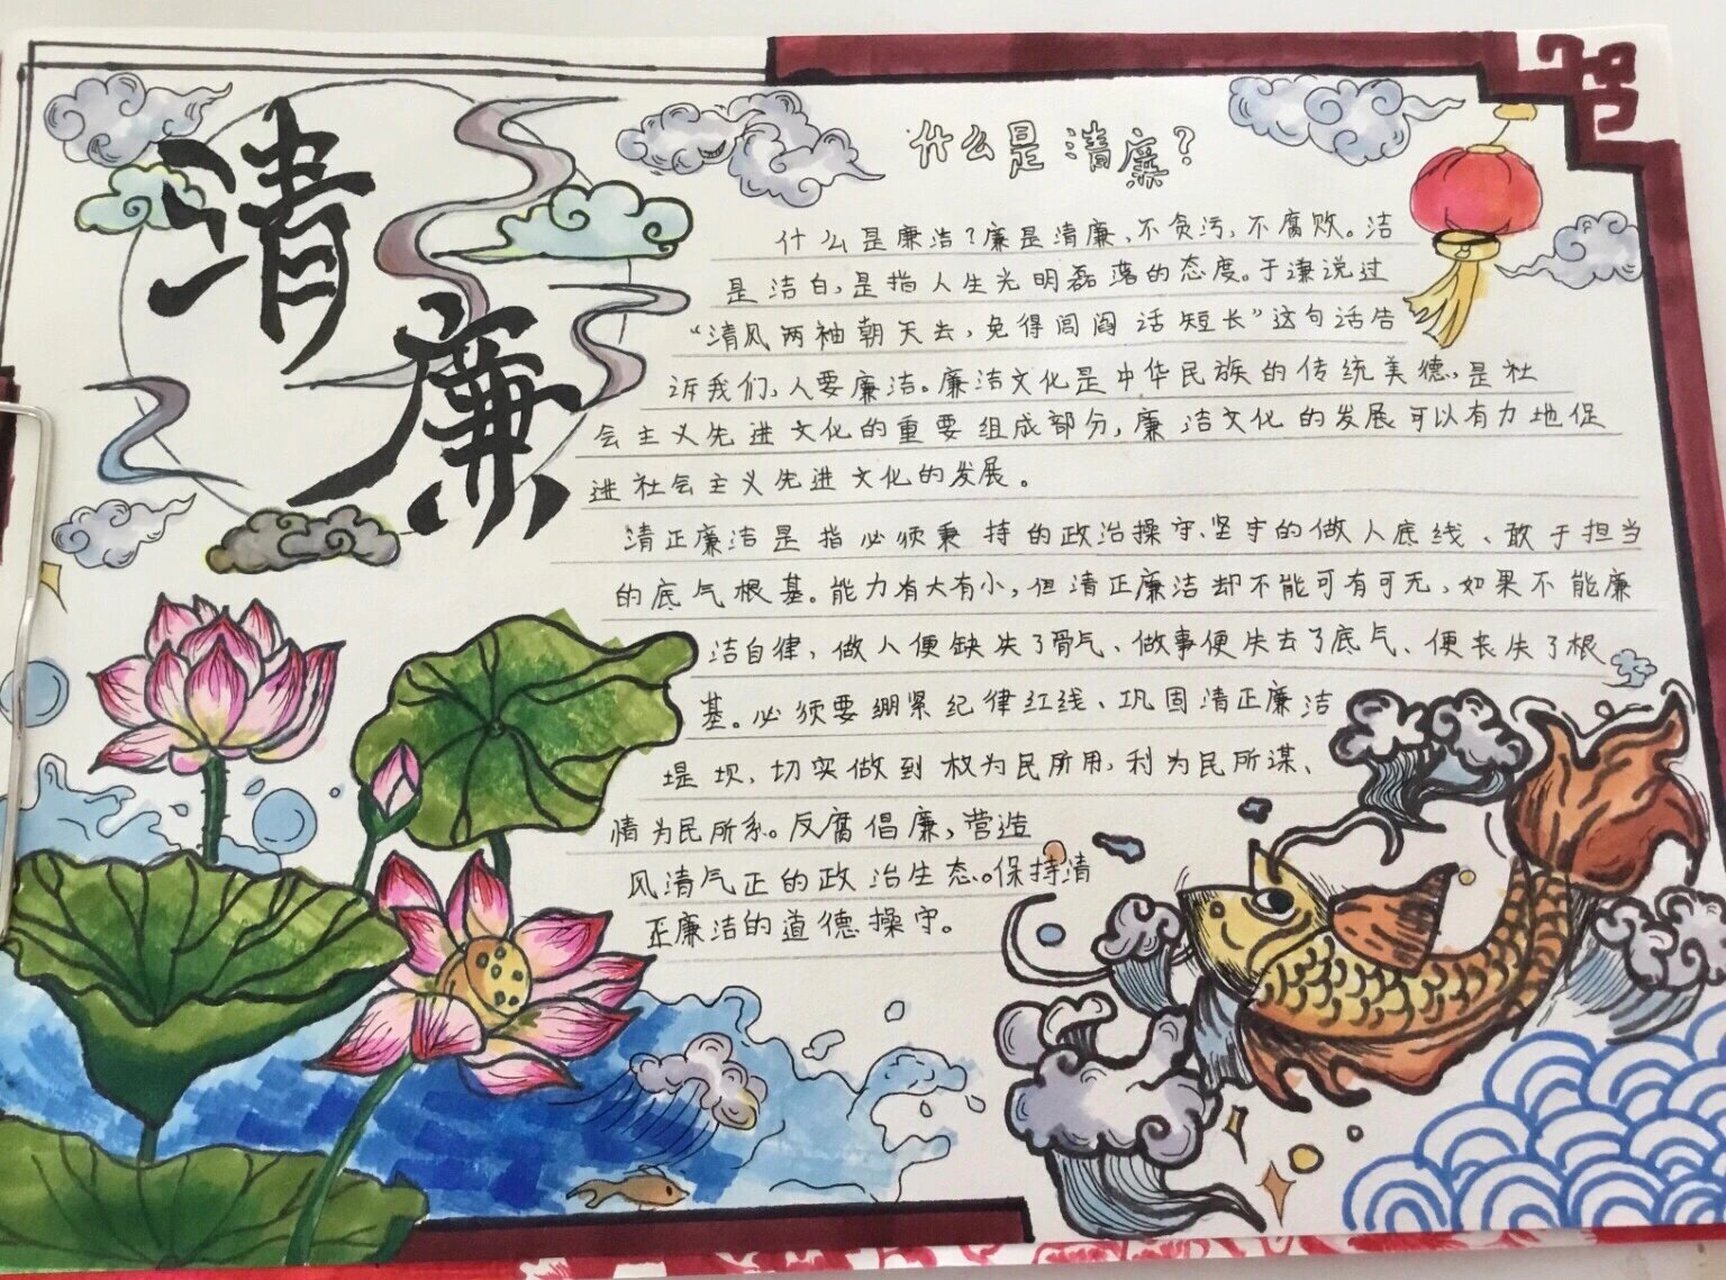 清廉
什么是清廉?
什么是廉洁?廉是清廉,不贪污,不腐败。洁
是洁白,是指人生光明磊落的态度。于谦说过
“清风两袖朝天去,免得闾阎话短长”这句话告
诉我们,人要廉洁。廉洁文化是中华民族的传统美德,是社
会主义先进文化的重要组成部分,廉洁文化的发展可以有力地促
进社会主义先进文化的发展。
清正廉洁是指必须秉持的政治操守、坚守的做人底线、敢于担当
的底气根基。能力有大有小,但清正廉洁却不能可有可无,如果不能廉
洁自律,做人便缺失了骨气、做事便失去了底气、便丧失了根
基。必须要绷紧纪律红线、巩固清正廉洁
堤坝,切实做到权为民所用,利为民所谋、
情为民所系。反腐倡廉,营造
风清气正的政治生态。保持清
正廉洁的道德操守。